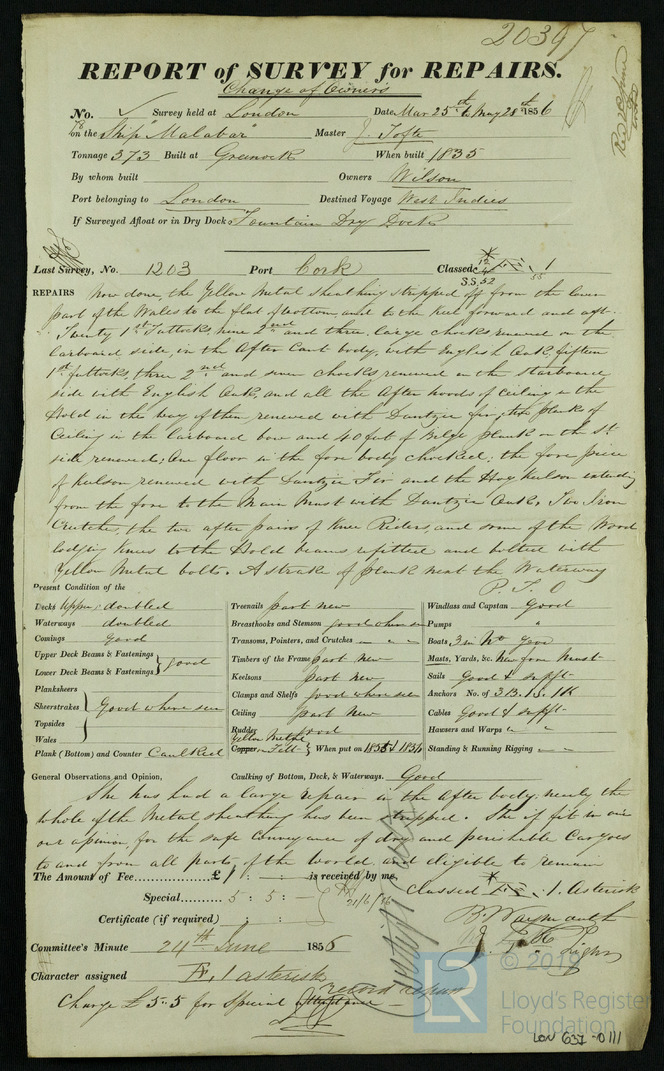 20397
REPORT of SURVEY for REPAIRS.
Change of Owners
No. ✓ Survey held at London Date, Mar 25th to May 28th 1856
on the Ship "Malabar" Master J. Tofte
Tonnage 373 Built at Greenock When built 1835
By whom built Owners Wilson
Port belonging to London Destined Voyage West Indies
If Surveyed Afloat or in Dry Dock Fountain Dry Dock
Last Survey, No. 1203 Port Cork Classed 1
S.S. 52 55
REPAIRS Now done, the Yellow Metal Sheathing stripped off from the lower
part of the Wales to the flat of bottom, and to the keel forward and aft.
Twenty 1st Futtocks, nine 2nd and three large chocks renewed on the
larboard side, in the After Cant body, with English Oak, fifteen
1st futtocks, three 2nd and seven chocks renewed on the Starboard
side with English Oak, and all the After hoods of Ceiling in the
Hold in the way of them, renewed with Dantzic fir; planks of
Ceiling in the larboard bow and 40 feet of Bilge plank on the St.
side renewed; One floor in the fore body chocked; the fore piece
of keelson renewed with Dantzic Fir and the Hog Keelson extending
from the fore to the Main Mast with Dantzic Oak, Two Iron
Crutches, the two after pairs of Knee Riders, and some of the Wood
lodging Knees to the Hold beams refitted and bolted with
Yellow Metal bolts. A strake of plank next the Waterway
P. T. O
Present Condition of the
Decks Upper doubled
Waterways doubled
Comings good
Upper Deck Beams & Fastenings
Lower Deck Beams & Fastenings } good
Planksheers
Sheerstrakes
Topsides
Wales } Good where seen
Plank (Bottom) and Counter Caulked
Treenails part new
Breasthooks and Stemson good where seen
Transoms, Pointers, and Crutches " "
Timbers of the Frame part new
Keelsons part new
Clamps and Shelfs good where seen
Ceiling part New
Rudder good
Yellow Metal
Copper on Felt } When put on 1855 & 1856
Windlass and Capstan Good
Pumps "
Boats 3 in No Good
Masts, Yards, &c. New fore Mast
Sails Good & sufft
Anchors No. of 3B. 1S. 1K
Cables Good & sufft
Hawsers and Warps " "
Standing & Running Rigging " "
General Observations and Opinion, Caulking of Bottom, Deck, & Waterways. Good
She has had a large repair in the After body, nearly the
whole of the Metal sheathing has been stripped. She is fit in
our opinion, for the safe conveyance of dry and perishable Cargoes
to and from all parts of the world and eligible to remain
The Amount of Fee £1 : - : - is received by me, classed 1. asterisk
Special 5 : 5 : - 21/6/56
Certificate (if required) : : B. Waymouth
Committee's Minute 24th June 1856
Character assigned 1 asterisk
record repairs
Charge £5.5 for Special Attendance
LR
© 2019
Lloyd's Register
Foundation
LON 637-0111